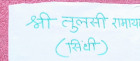 श्री तुलसी रामाय
(सिंधी)